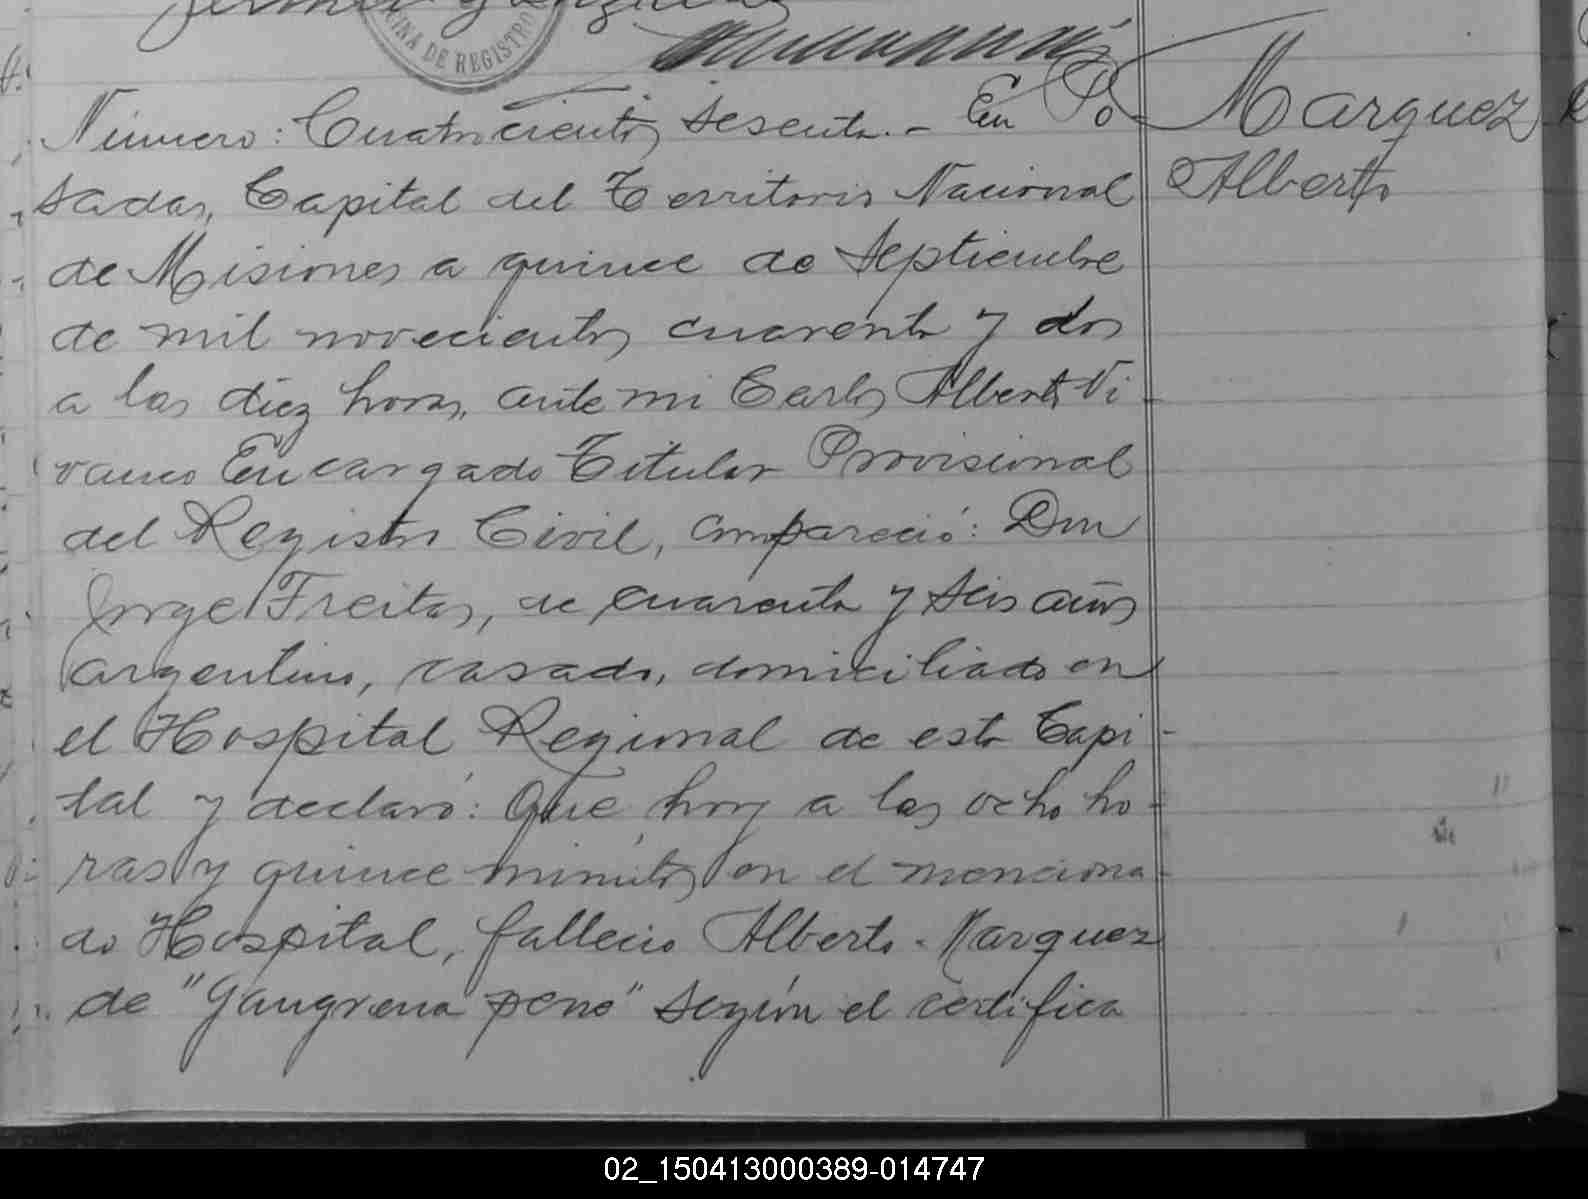 OFICINA DE REGISTRO
Número: Cuatrocientos sesenta.- En Po
sadas, Capital del Territorio Nacional
de Misiones a quince de Septiembre
de mil novecientos cuarenta y dos
a las diez horas, ante mi Carlos Alberto Vi-
vanco Encargado Titular Provisional
del Registro Civil, compareció: Don
Jorge Freitas, de cuarenta y seis años
argentino, casado, domiciliado en
el Hospital Regional de esta Capi-
tal y declaró: Que hoy a las ocho ho-
ras y quince minutos en el menciona-
do Hospital, fallecio Alberto Marquez
de "Gangrena pene" según el certifica
Marquez
Alberto
02_150413000389-014747